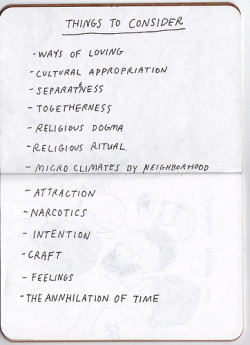 THINGS TO CONSIDER
- WAYS OF LOVING
- CULTURAL APPROPRIATION
- SEPARATNESS
- TOGETHERNESS
- RELIGIOUS DOGMA
- RELIGIOUS RITUAL
- MICRO CLIMATES BY NEIGHBORHOOD
- ATTRACTION
- NARCOTICS
- INTENTION
- CRAFT
- FEELINGS
- THE ANNHILATION OF TIME